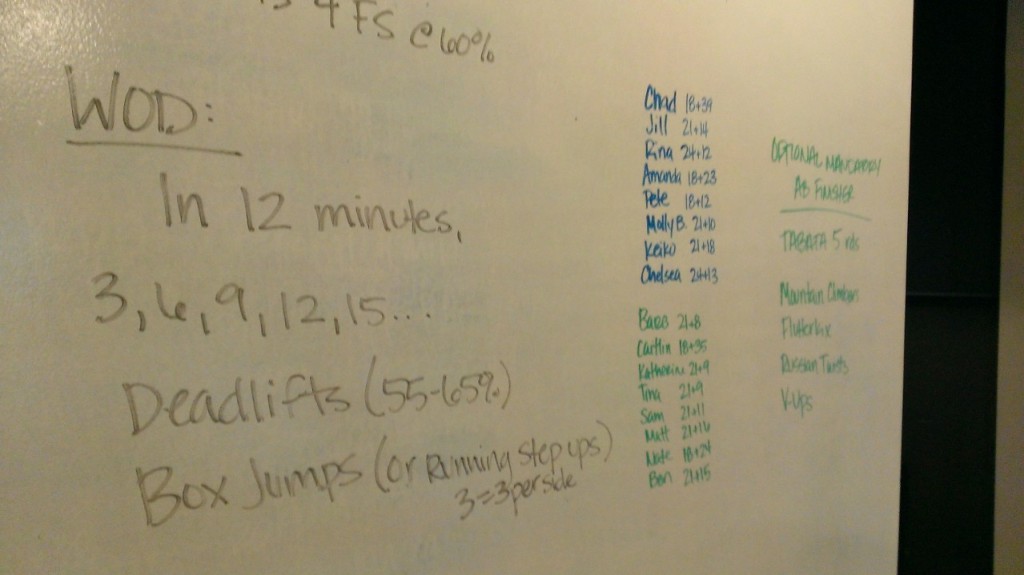 4 FS @ 60%
WOD:
In 12 minutes,
3, 6, 9, 12, 15...
Deadlifts (55-65%)
Box Jumps (or Running step ups)
3=3 per side
Chad 18+39
Jill 21+14
Rina 24+12
Amanda 18+23
Pete 18+12
Molly B. 21+10
Keiko 21+18
Chelsea 21+13
21+8
Caitlin 18+35
Katherine 21+9
Tina 21+9
Sam 21+11
Matt 21+16
Nate 18+24
Ben 21+15
OPTIONAL MANDATORY
AB FINISHER
TABATA 5 rds
Mountain Climbers
Flutterkix
Russian Twists
V-Ups